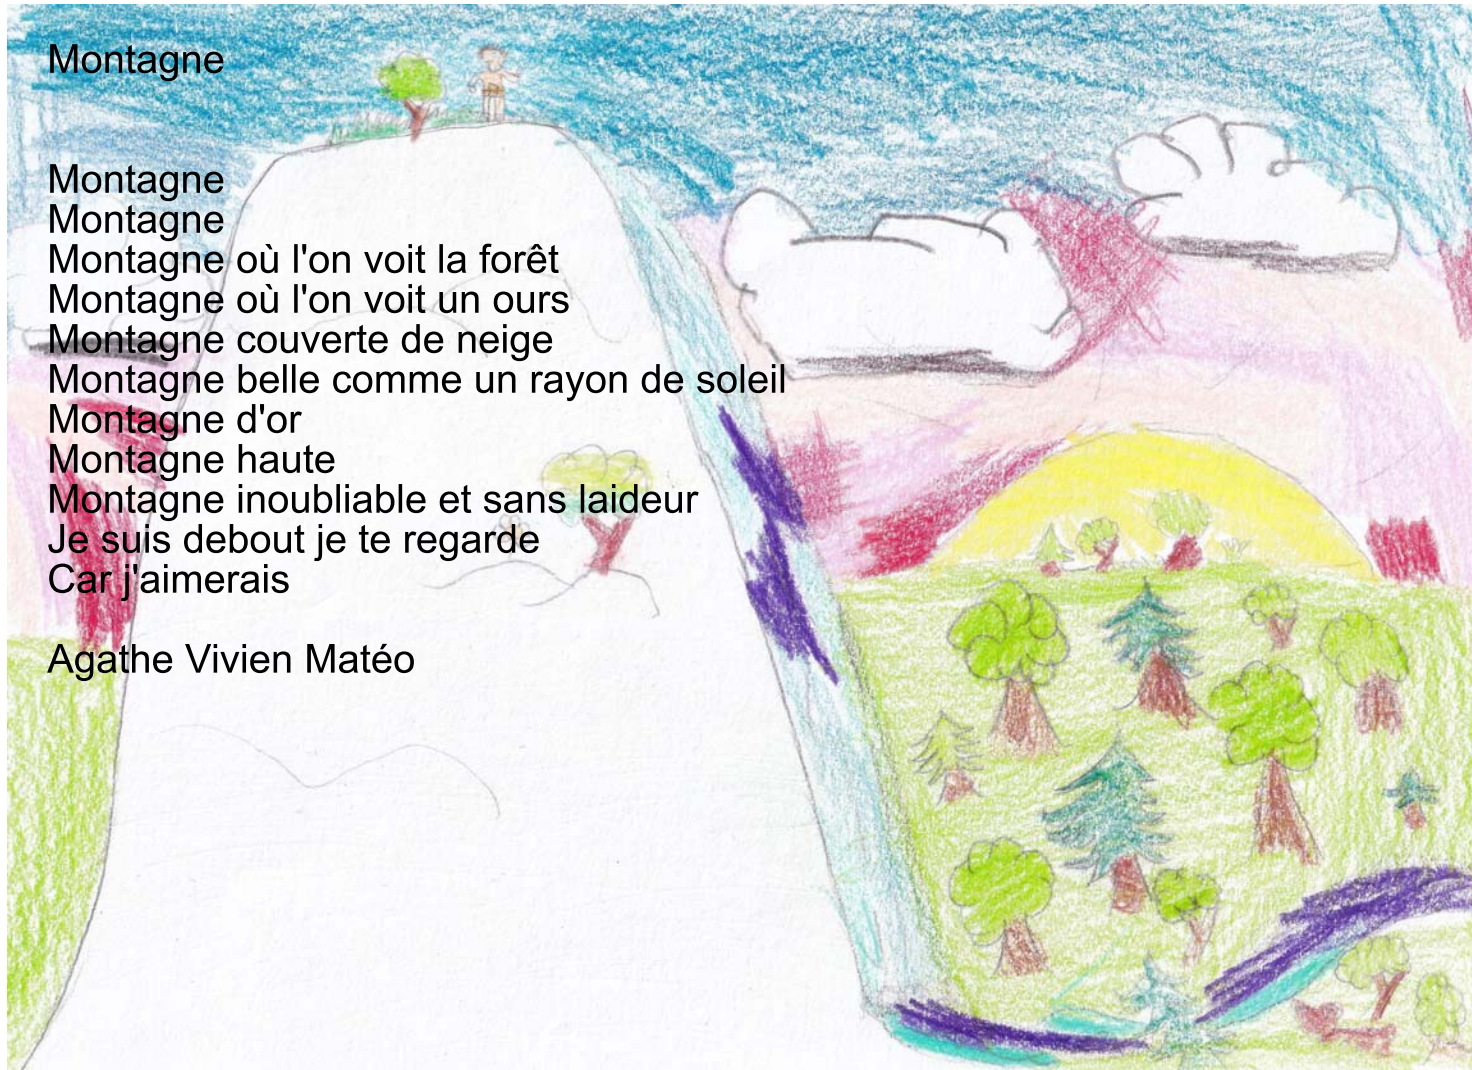 Montagne
Montagne
Montagne
Montagne où l'on voit la forêt
Montagne où l'on voit un ours
Montagne couverte de neige
Montagne belle comme un rayon de soleil
Montagne d'or
Montagne haute
Montagne inoubliable et sans laideur
Je suis debout je te regarde
Car j'aimerais
Agathe Vivien Matéo